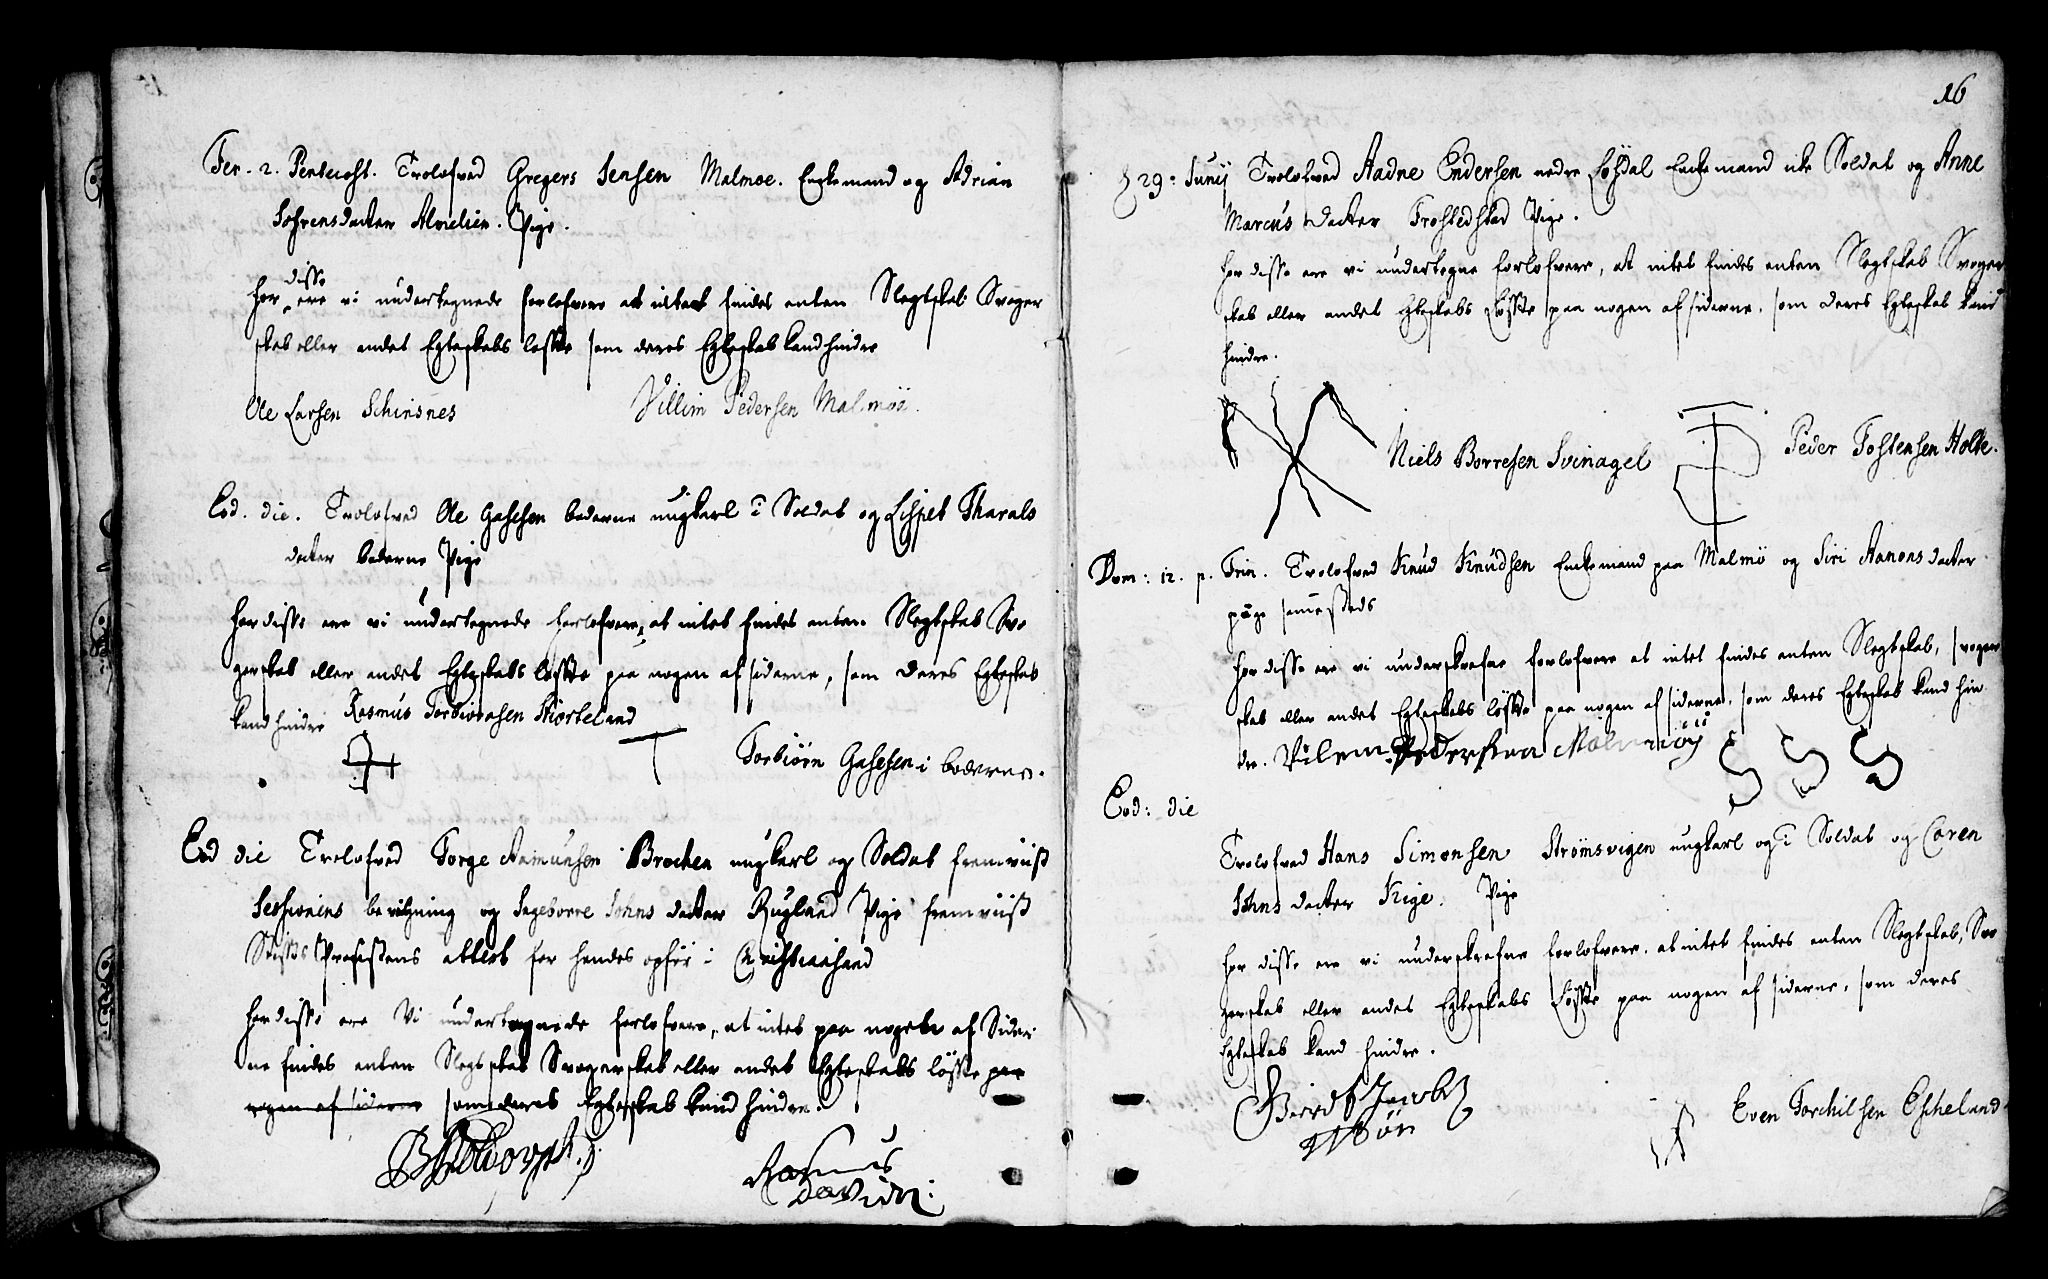 Fer. 2. Pentecost. Trolofved Gregers Jensen Malmoe. Enkemand og Adrian
Sohrensdatter Pige.
disse
For ere vi undertegnede forlofvere at intet findes enten Slegtskab Svoger
skab eller andet Egteskabs løfte som deres Egteskab kand hindre
Ole Larsen Schinsnes Villim Pedersen Malmöe.
Eod. die. Trolofved Ole Gasesen boderne ungkarl i Soldat og Lispet Tharals
datter boderne Pige
For disse ere vi undertegnede forlofvere, at intet findes enten Slegtskab Svo
gerskab eller andet Egteskabs løfte paa nogen af siderne, som deres Egteskab
kand hindre Rasmus Torbiörnsen Torbiörn Gasesen i boderne.
Eod die Trolofved Torge Aamunsen Brochen ungkarl og Soldat fremviist
Sessionens bevilgning og Ingeborre Johns datter Rugland Pige fremviist
attest for hendes opför i Christiansand
For disse ere Vi undertegnede forlofvere, at intet paa nogen af Sider
ne findes enten Slegtskab Svogerskab eller andet Egteskabs löfte paa
nogen af siderne som deres Egteskab kand hindre.
Rasmus
16
d 29: Junij Trolofved Aadne Endersen nedre Enkemand icke Soldat og Anne
Marcus datter Trostedstad Pige.
For disse ere vi undertegne forlofvere, at intet findes enten Slegtskab Svoger
skab eller andet Egteskabs Löfte paa nogen af siderne, som deres Egteskab kand
hindre.
Niels Borresen Svinagel Peder Tostensen Holte.
Dom: 12. p. Trin. Trolofved Knud Knudsen Enkemand paa Malmö og Siri Aanons datter
pige sammesteds
For disse ere vi underskrefne forlofvere at intet findes enten Slegtskab, svoger
skab eller andet Egteskabs löfte paa nogen af siderne, som deres Egteskab kand hin
dre. Vilem Pedersen Malmöy SSS
Eod: die
Trolofved Hans Simonsen Strömsvigen ungkarl og i Soldat og Caren
Johns datter Kige. Pige
For disse ere vi underskrefne forlofvere, at intet findes enten Slegtskab, Svo
gerskab eller andet Egteskabs Löfte paa nogen af siderne, som deres
Egteskab kand hindre.
Even Torchilsen Escheland